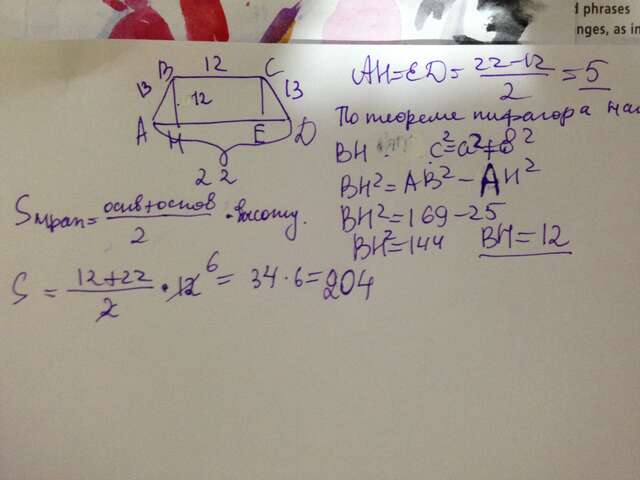 AH=ED= 22-12 / 2 = 5
По теореме пифагора
BH c²=a²+b²
BH²=AB²-AH²
BH²=169-25
BH²=144 BH=12
B 12 C
13 12 13
A H E D
22
Sтрап= основ+основ / 2 · высоту.
S = 12+22 / 2 · 12 6 = 34·6=204
f phrases
nges, as in